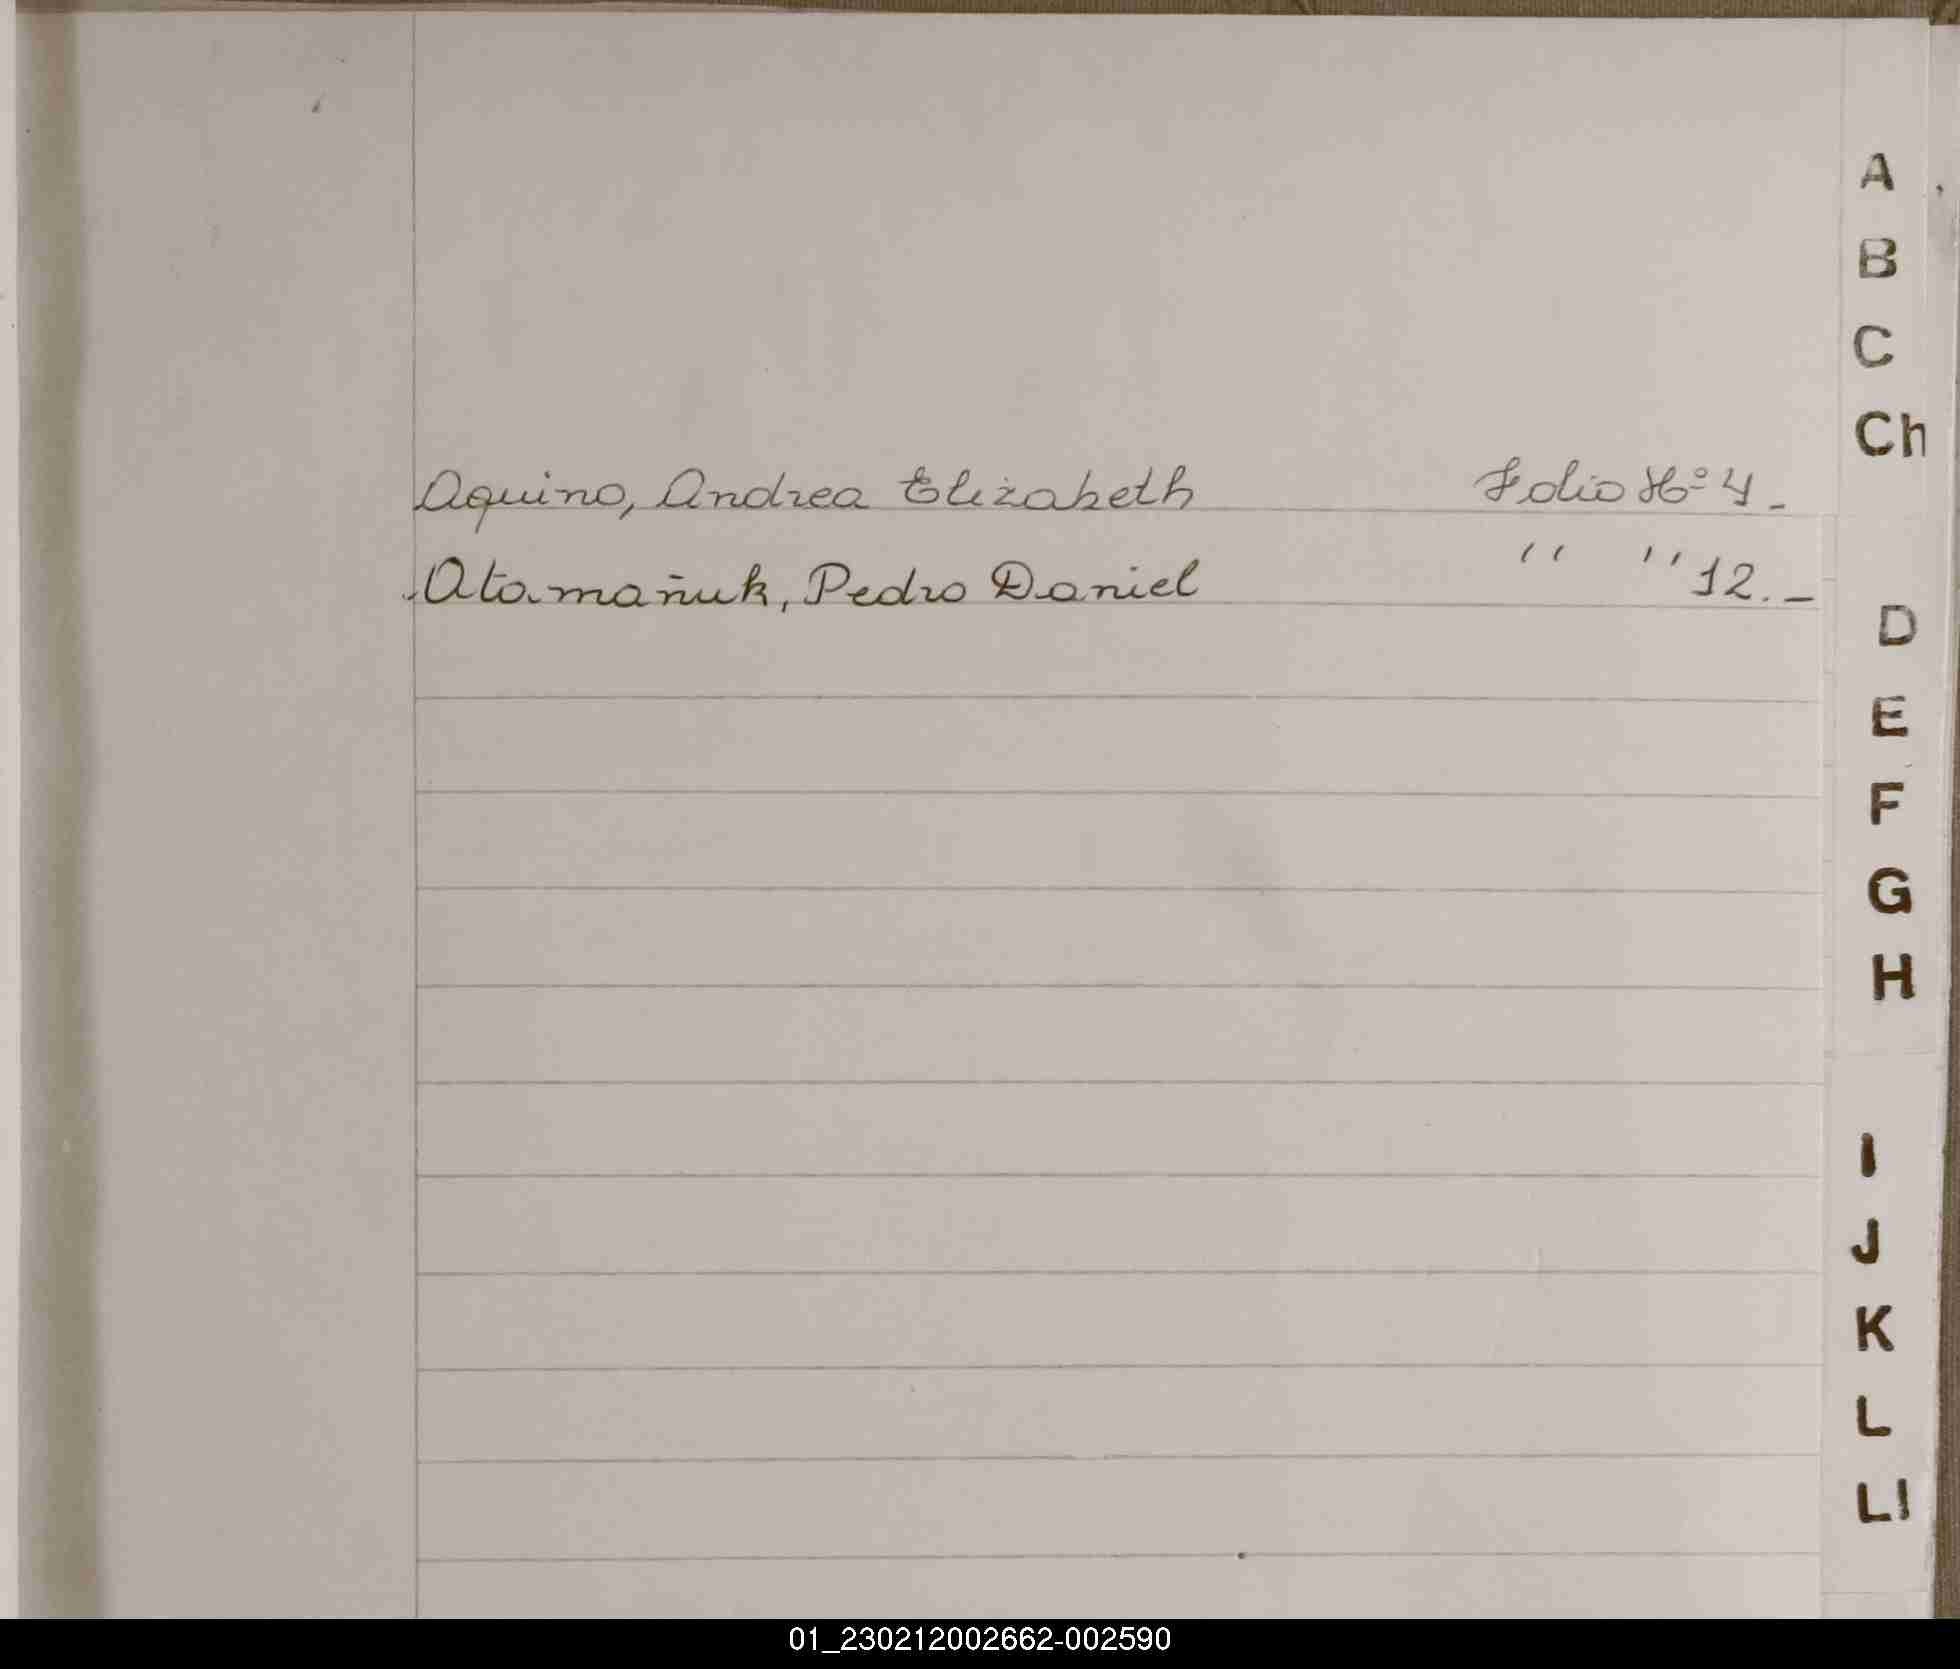 A
B
C
Ch
Aquino, Andrea Elizabeth Folio Nº 4.-
Atamañuk, Pedro Daniel " " 12.-
D
E
F
G
H
I
J
K
L
Ll
01_230212002662-002590